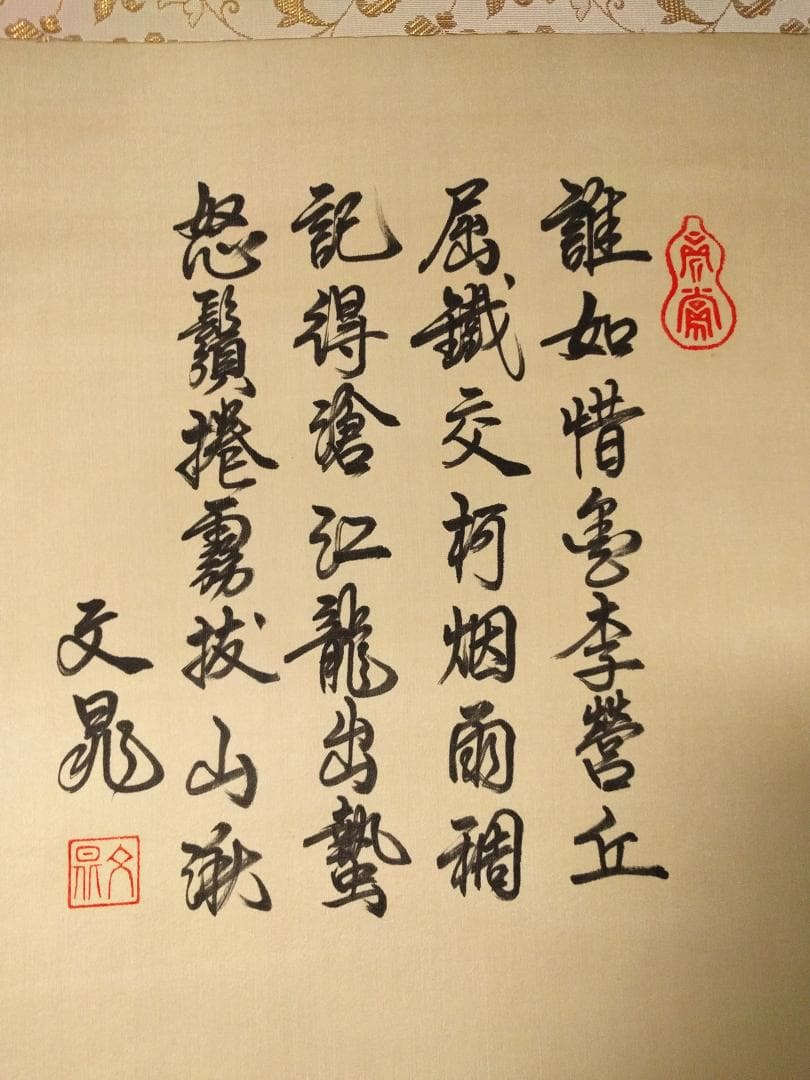 誰如惜墨李營丘
屈鐵交柯烟雨稠
記得滄江龍出蟄
怒鬚捲霧拔山湫
文晁
文晁